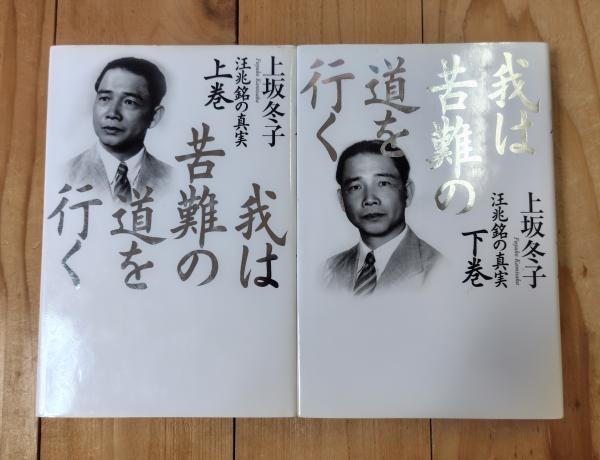 上坂冬子
Fuyuko Kamisaka
汪兆銘の真実
上巻
我は
苦難の
道を
行く
我は
苦難の
道を
行く
上坂冬子
Fuyuko Kamisaka
汪兆銘の真実
下巻